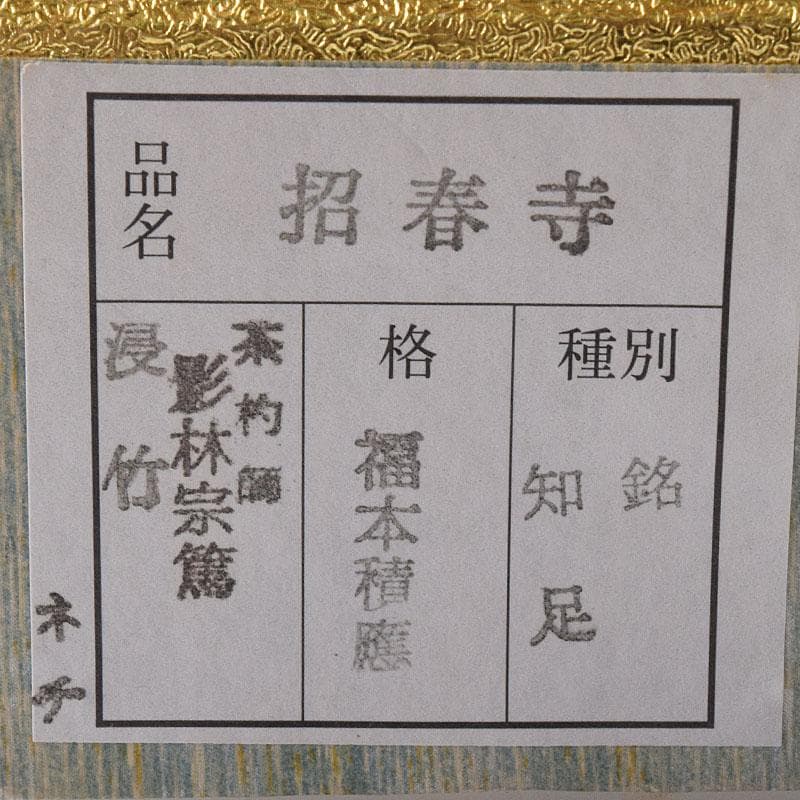 品名
招春寺
種別
銘
知足
格
福本積應
茶杓師
影林宗篤
浸竹
ネチ